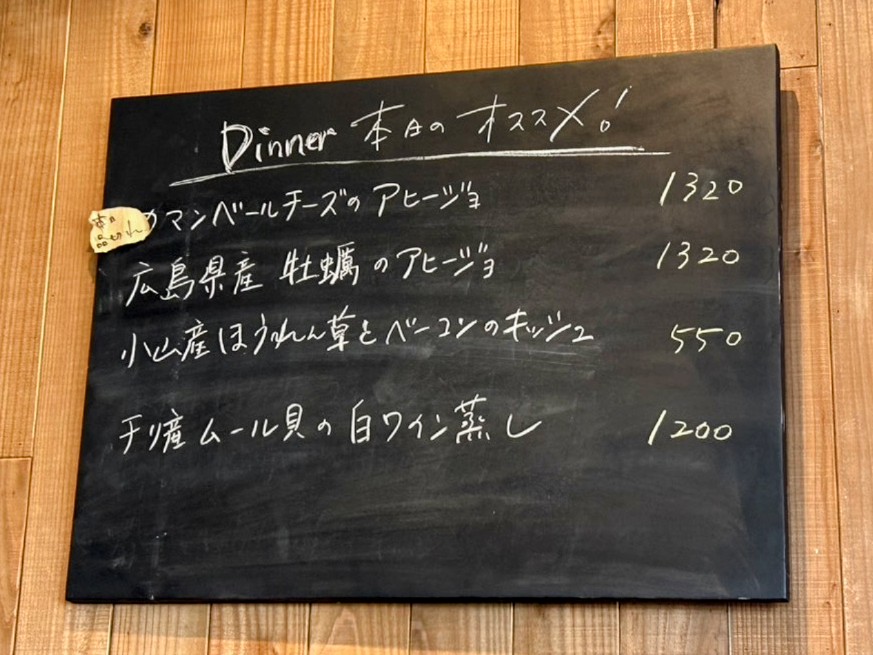 Dinner 本日の オススメ!
本日
品切れ
カマンベールチーズのアヒージョ 1320
広島県産 牡蠣のアヒージョ 1320
小山産ほうれん草とベーコンのキッシュ 550
チリ産 ムール貝の白ワイン蒸し 1200